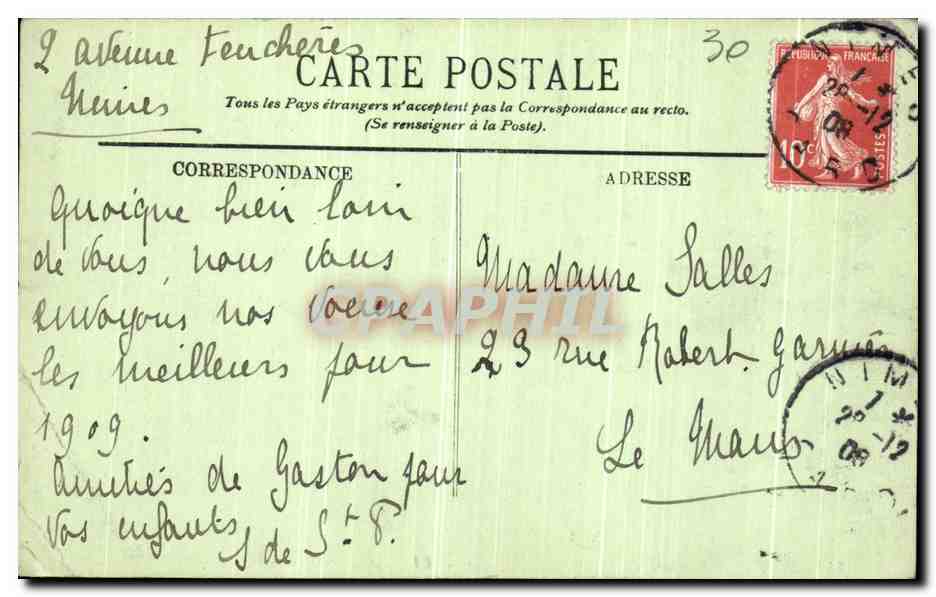 2 avenue Feuchères
Nimes
30
CARTE POSTALE
Tous les Pays étrangers n'acceptent pas la Correspondance au recto.
(Se renseigner à la Poste).
REPUBLIQUE FRANÇAISE
10c
POSTES
NIMES
28-12
08
CORRESPONDANCE
ADRESSE
Quoique bien loin
de vous, nous vous
envoyons nos voeux
les meilleurs pour
1909.
Amitiés de Gaston pour
vos enfants
S de St. P.
Madame Salles
23 rue Robert Garnier
Le Mans
NIM
28-12
08
CPAPHIL